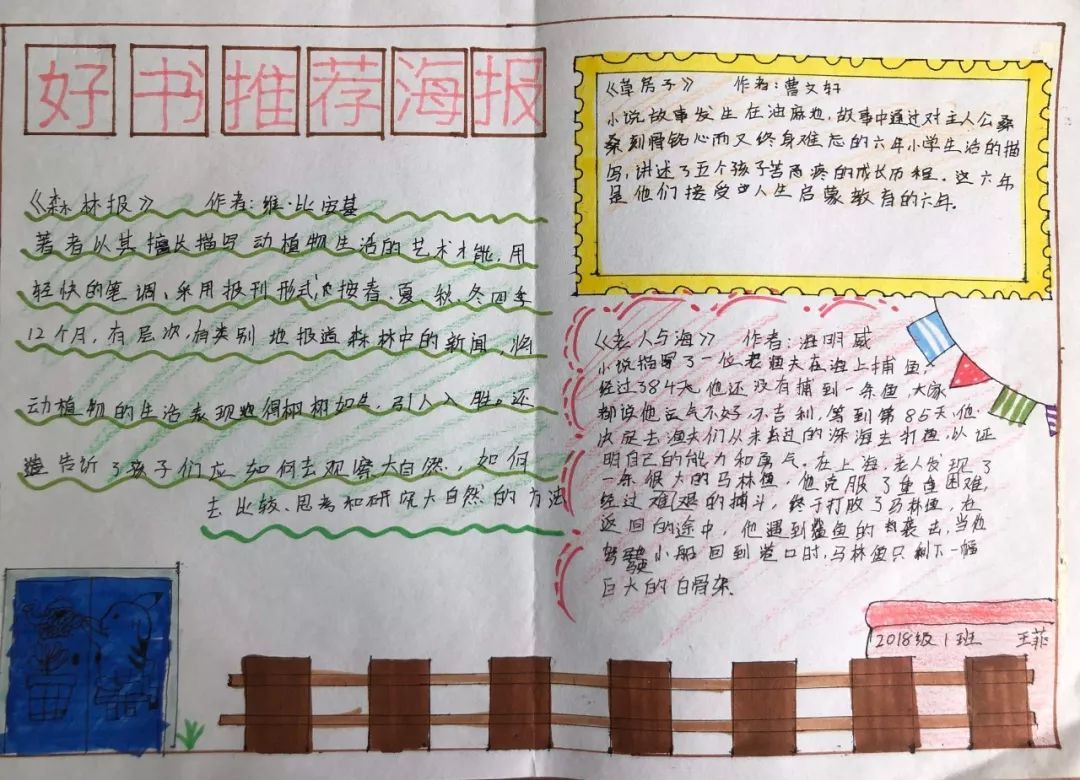 好书推荐海报
《森林报》 作者:维·比安基
著者以其擅长描写动植物生活的艺术才能,用
轻快的笔调、采用报刊形式,按春、夏、秋、冬四季
12个月,有层次,有类别地报道森林中的新闻,将
动植物的生活表现得栩栩如生,引人入胜。还
告诉了孩子们应如何去观察大自然,如何
去比较、思考和研究大自然的方法
《草房子》 作者:曹文轩
小说故事发生在油麻地,故事中通过对主人公桑
桑刻骨铭心而又终身难忘的六年小学生活的描
写,讲述了五个孩子苦而疼的成长历程。这六年
是他们接受人生启蒙教育的六年.
《老人与海》 作者:海明威
小说描写了一位老渔夫在海上捕鱼,
经过84天他还没有捕到一条鱼,大家
都说他运气不好,不吉利,等到第85天,他
决定去渔夫们从未去过的深海去打鱼,以证
明自己的能力和勇气.在上海,老人发现了
一条很大的马林鱼,他克服了重重困难,
经过难艰的捕斗,终于打败了马林鱼,在
返回的途中,他遇到鲨鱼的袭击,当他
驾驶小船回到港口时,马林鱼只剩下一幅
巨大的白骨架.
2018级1班 王菲